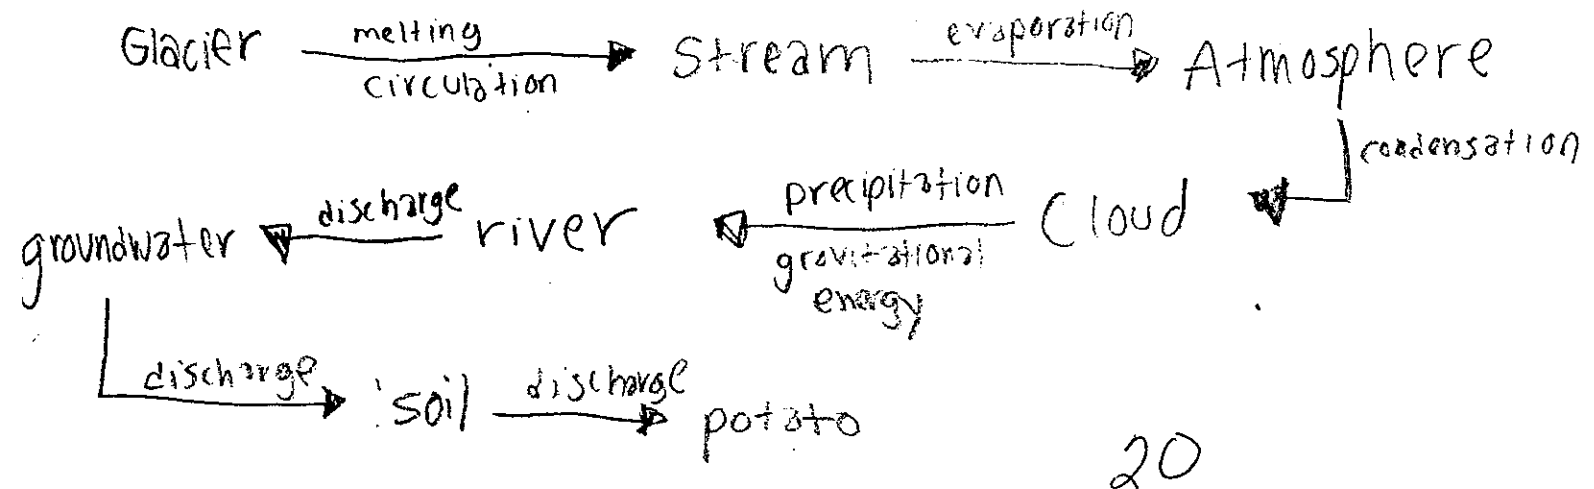 Glacier melting circulation Stream evaporation Atmosphere
condensation
groundwater discharge river precipitation gravitational energy Cloud
discharge soil discharge potato
20